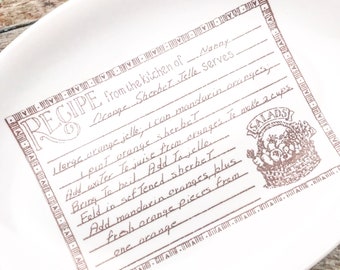 RECIPE from the kitchen of Nanny
Orange Sherbet Jello serves
1 large orange jello, 1 can mandarin oranges,
1 pint orange sherbet
Add water to juice from oranges to make 2 cups.
Bring to boil. Add to jello.
Fold in softened sherbet
Add mandarin oranges, plus
fresh orange pieces from
one orange
SALADS